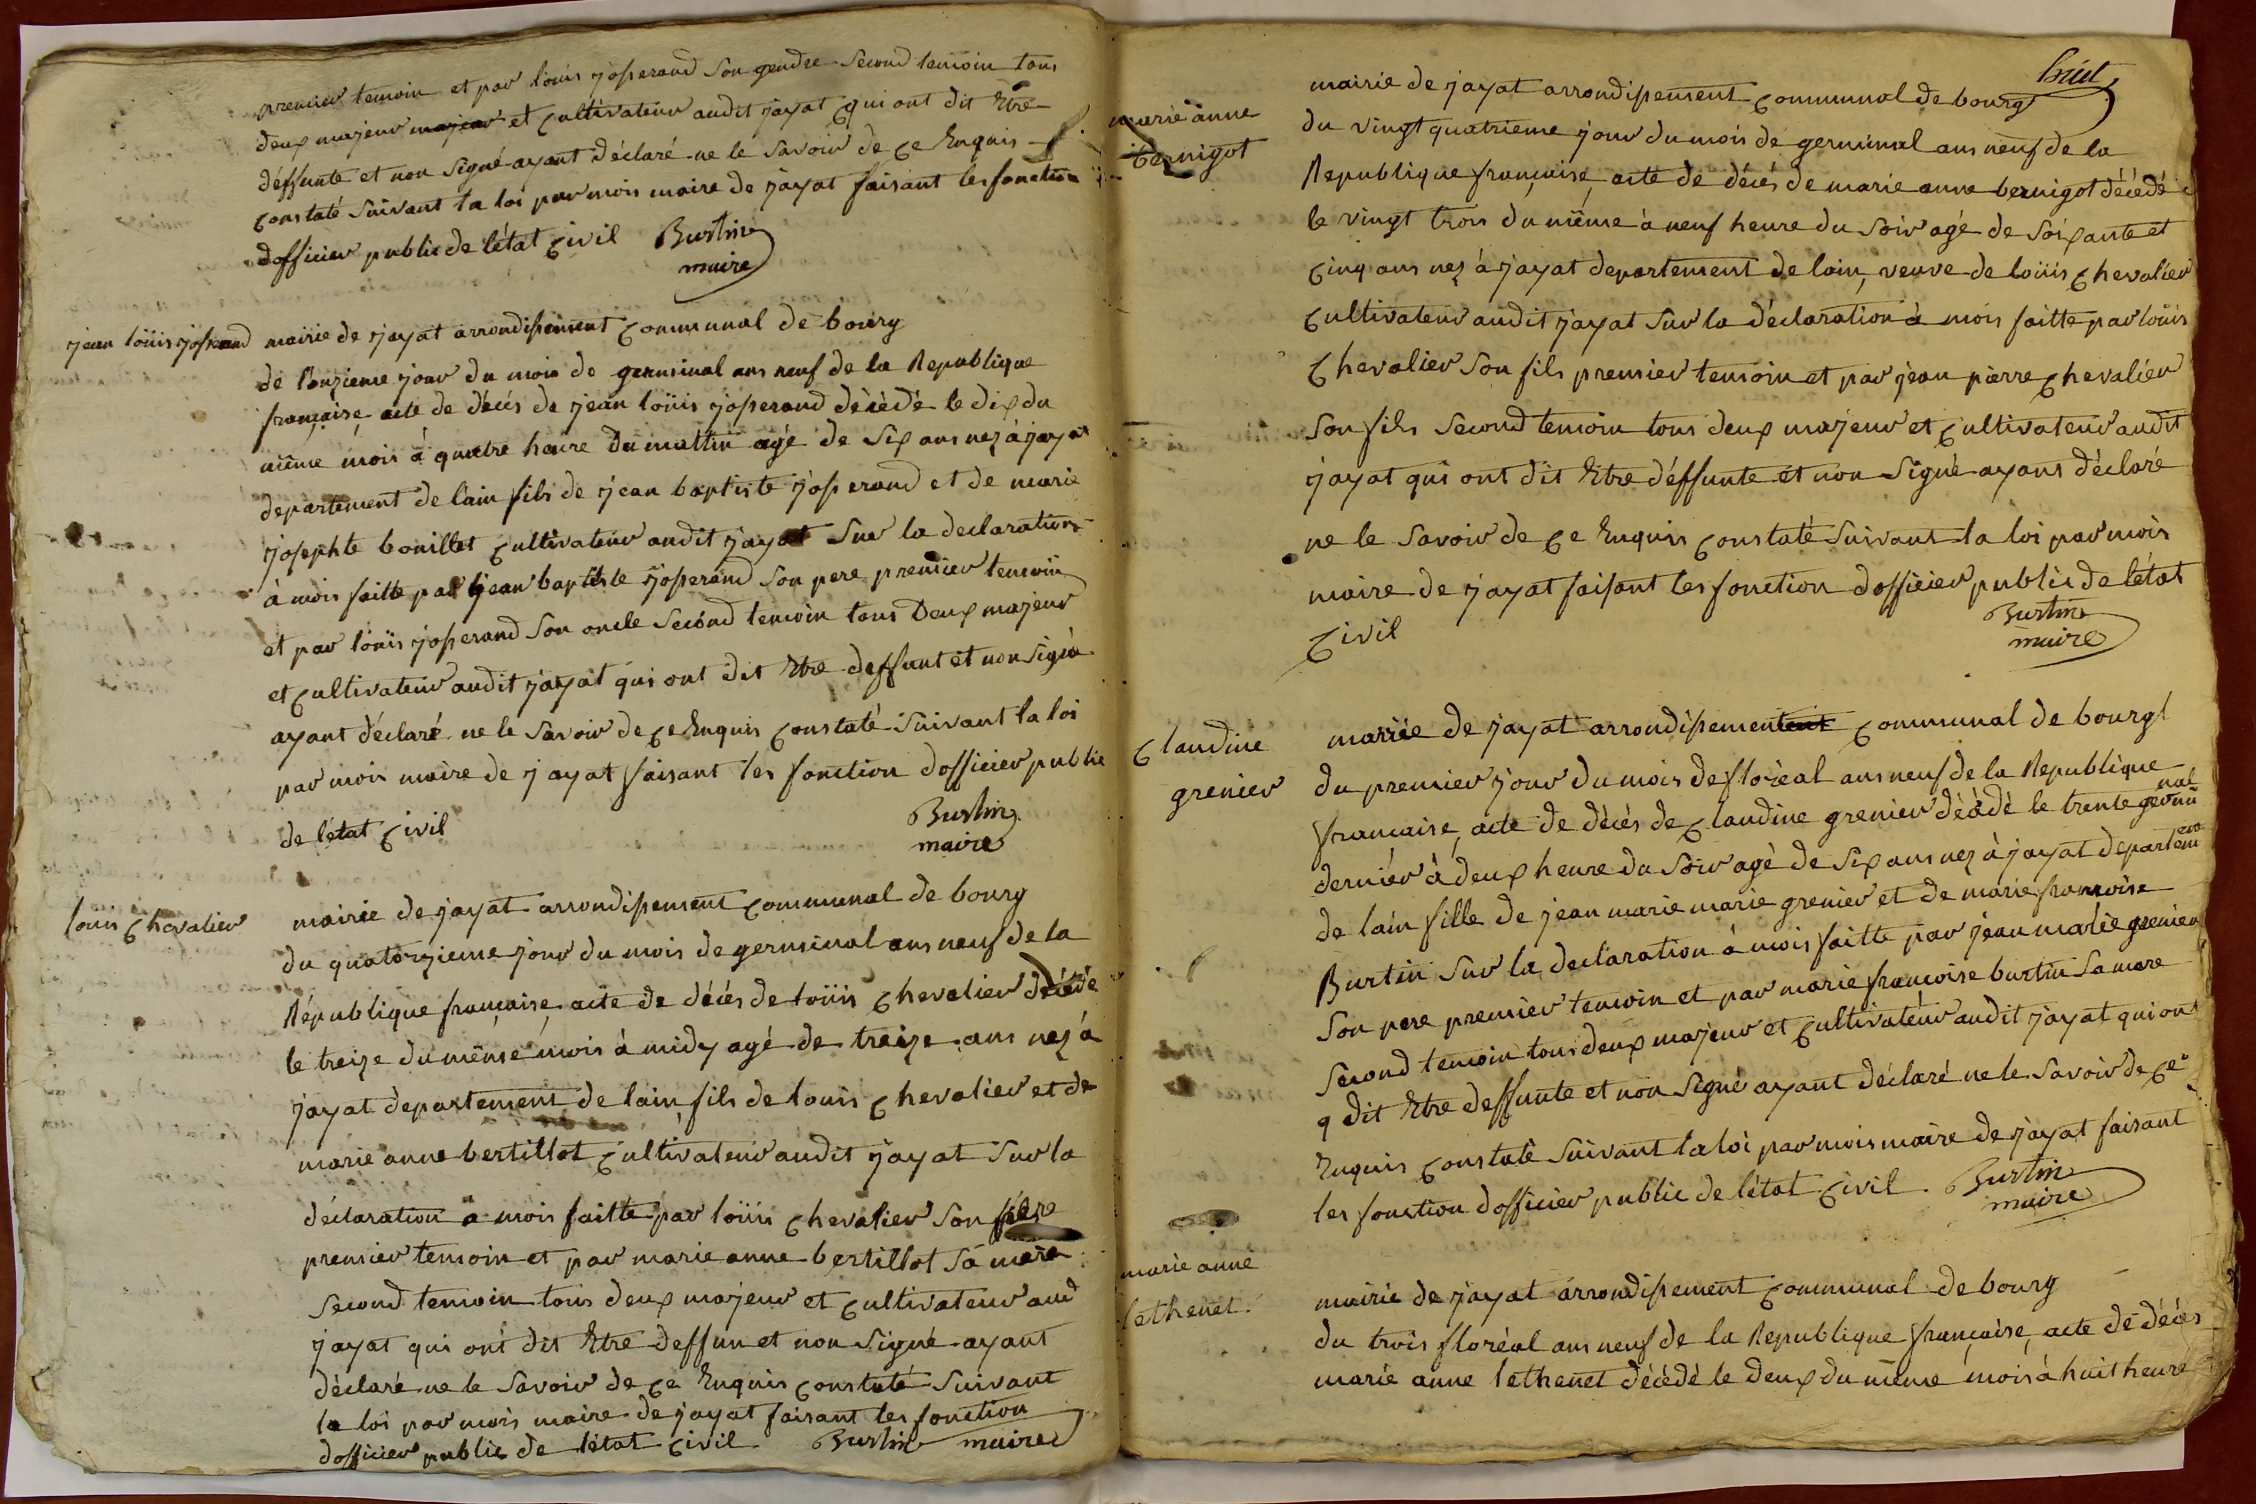 premier temoin et par louis josserand son gendre second temoin tous
deux majeur majeur et cultivateur audit jayat qui ont dit Etre
déffunte et non signé ayant déclaré ne le savoir de ce Enquis
constaté suivant la loi par mois maire de jayat faisant les fonction
dofficier public de létat civil Burtin
maire
jean loüis josserand
mairie de jayat arrondissement communal de bourg
de lonzieme jour du mois de germinal ans neuf de la Republique
française, acte de décés de jean loüis josserand décédé le dix du
même mois à quatre heure du mattin agé de six ans nez à jayat
departement de lain fils de jean baptiste josserand et de marie
josephte bouillet cultivateur audit jayat sur la declaration
à mois faitte par jean baptiste josserand son pere premier temoin
et par loüis josserand son oncle second temoin tous deux majeur
et cultivateur audit jayat qui ont dit Etre deffunt et non signé
ayant déclaré ne le savoir de ce Enquis constaté suivant la loi
par mois maire de jayat faisant les fonction dofficier public
de létat civil Burtin
maire
louis chevalier
mairie de jayat arrondissement communal de bourg
du quatorzieme jour du mois de germinal ans neuf de la
République française, acte de décés de loüis chevalier décédé
le treize du même mois à midy agé de treize ans nez à
jayat departement de lain fils de louis chevalier et de
marie anne bertillot cultivateur audit jayat sur la
déclaration a mois faitte par loüis chevalier son père
premier temoin et par marie anne bertillot sa mere
second temoin tous deux majeur et cultivateur aud
jayat qui ont dit Etre deffun et non signé ayant
déclaré ne le savoir de ce Enquis constaté suivant
la loi par mois maire de jayat faisant les fonction
dofficier public de létat civil Burtin maire
marie anne
bernigot
mairie de jayat arrondissement communal de bourg
du vingt quatrieme jour du mois de germinal ans neuf de la
Republique française, acte de décés de marie anne bernigot décédé
le vingt trois du même à neuf heure du soir agé de soixante et
cinq ans nez à jayat departement de lain, veuve de loüis chevalier
cultivateur audit jayat sur la déclaration à mois faitte par loüis
chevalier son fils premier temoin et par jean pierre chevalier
son fils second temoin tous deux majeur et cultivateur audit
jayat qui ont dit Etre déffunte et non signé ayans déclaré
ne le savoir de ce Enquis constaté suivant la loi par mois
maire de jayat faisant les fonction dofficier public de létat
civil Burtin
maire
claudine
grenier
mairie de jayat arrondissementent communal de bourg
du premier jour du mois de floréal ans neuf de la Republique
francaise, acte de décés de claudine grenier décédé le trente germinal
dernier à deux heure du soir agé de six ans nez à jayat departem
de lain fille de jean marie marie grenier et de marie francoise
Burtin sur la declaration à mois faitte par jean marie grenier
son pere premier temoin et par marie francoise burtin sa mere
second temoin tous deux majeur et cultivateur audit jayat qui ont
q dit Etre deffunte et non signé ayant déclaré ne le savoir de ce
Enquis constaté suivant la loi par mois maire de jayat faisant
les fonction dofficier public de létat civil. Burtin
maire
marie anne
lethenet.
mairie de jayat arrondissement communal de bourg
du trois floréal ans neuf de la Republique française, acte de décés
marie anne lethenet décédé le deux du même mois à huit heure